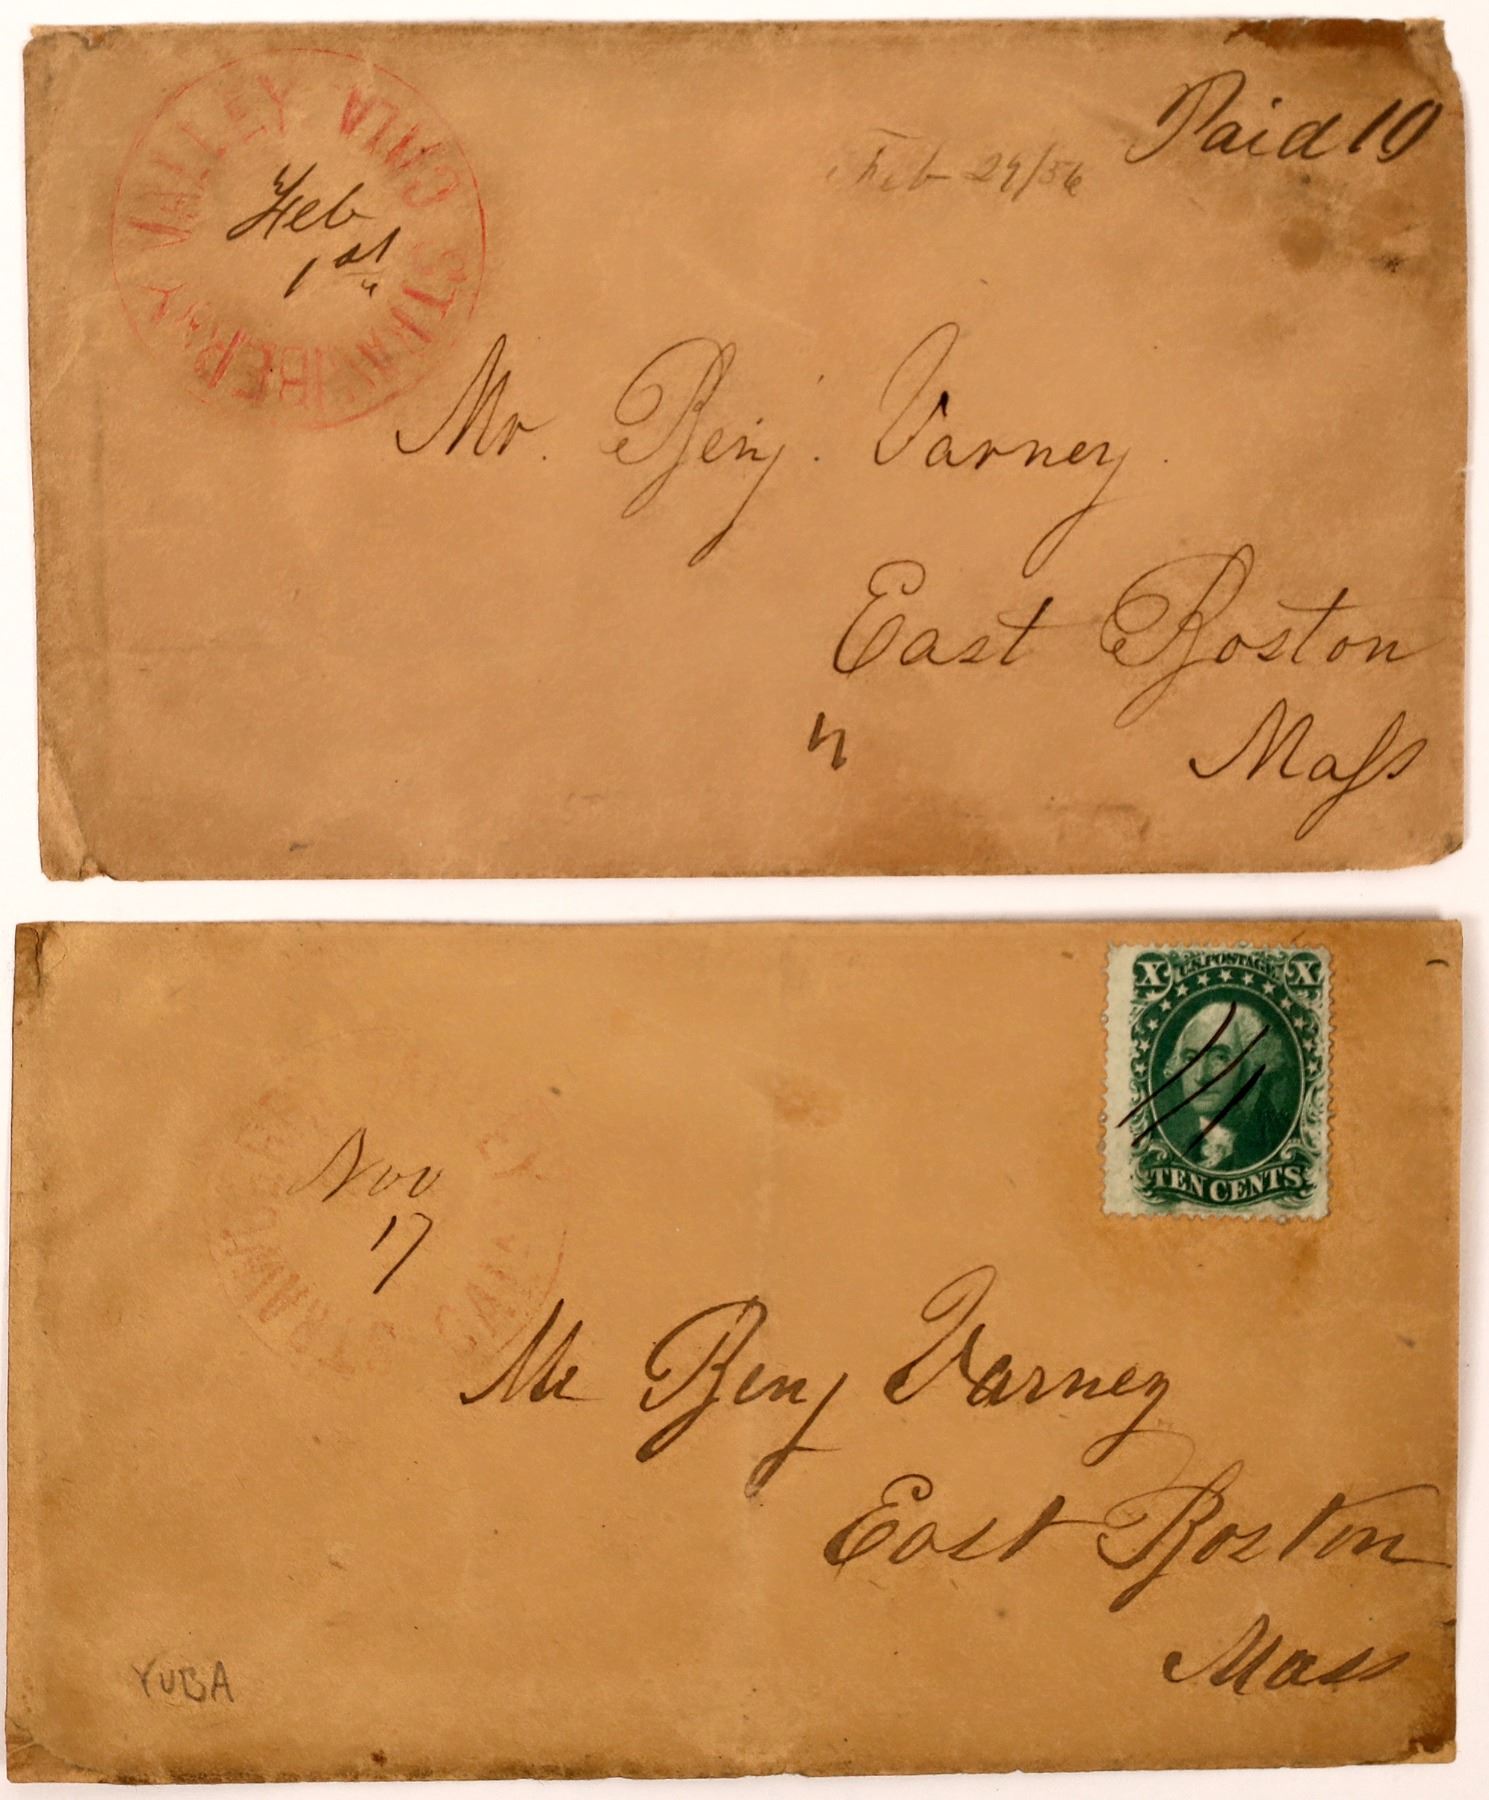 STRAWBERRY VALLEY CALA
Feb
1st
Paid 10
Feb 29/56
Mr. Benj. Varney.
East Boston
Mass
U.S. POSTAGE.
X X
TEN CENTS
Nov
17
STRAW
CAL
Mr Benj Varney
East Boston
Mass
YUBA